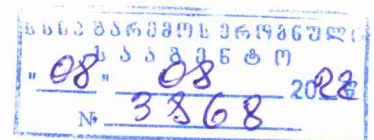 სსიპ გარემოს ეროვნული
სააგენტო
"08" 08 2022
№ 3868